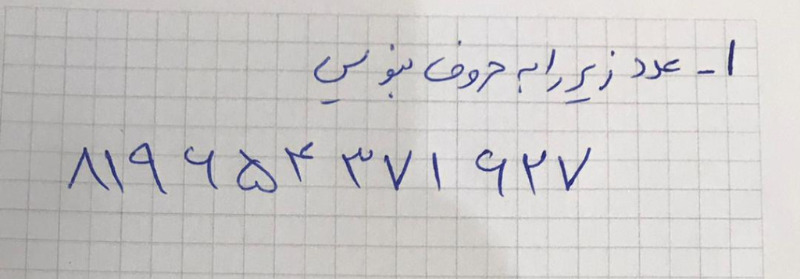 ۱- عدد زیر را به حروف بنویس
۸۱۹ ۶۵۴ ۳۷۱ ۶۲۷